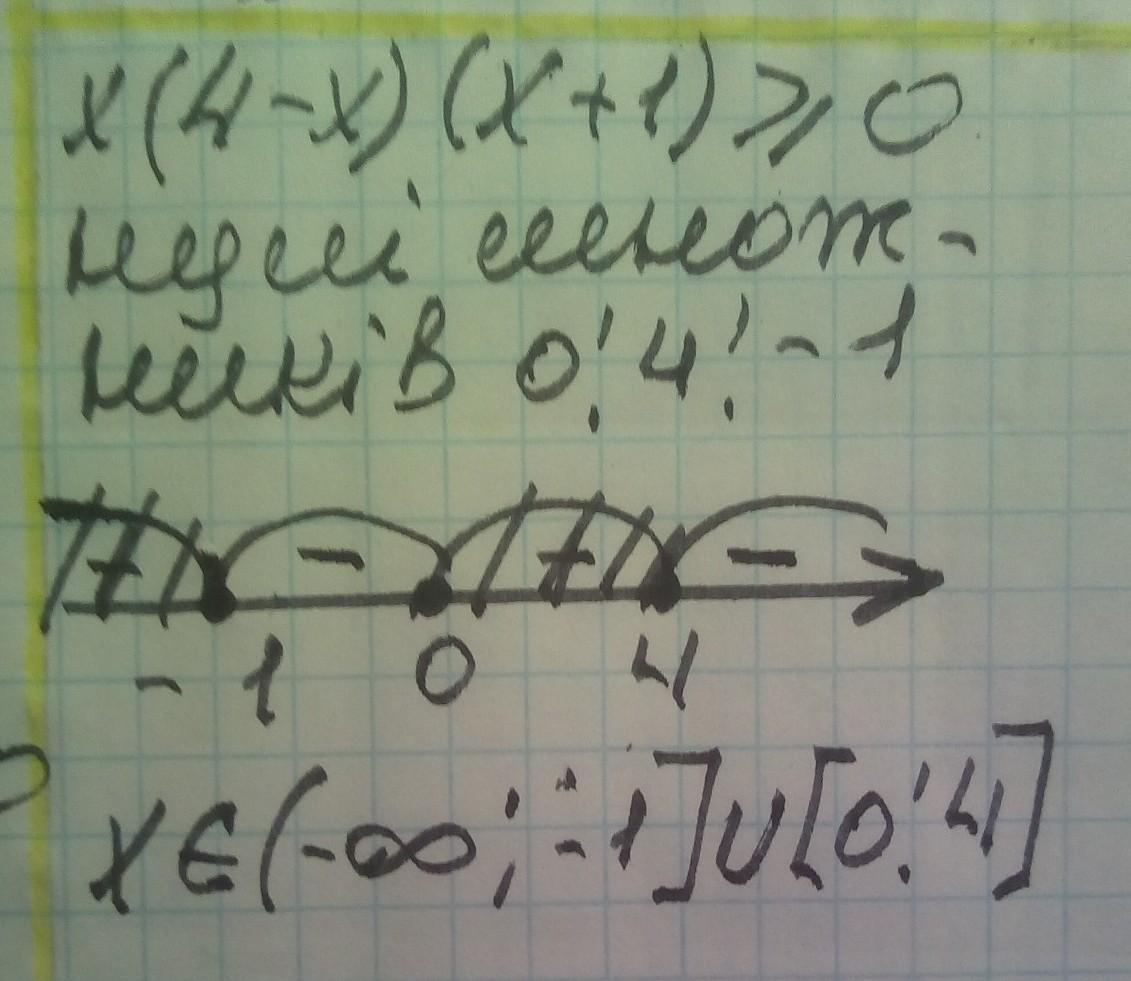 x(4-x)(x+1)⩾0
нулі множ-
ників 0; 4; -1
+ - + -
-1 0 4
x∈(-∞; -1]∪[0; 4]